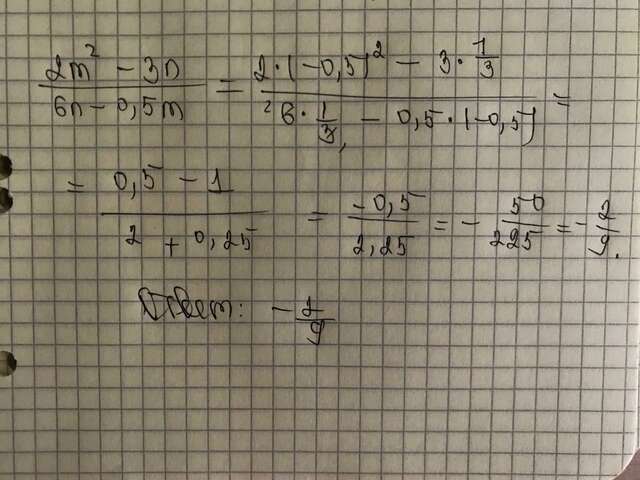 (2m² − 3n)/(6n − 0,5m) = (2·(−0,5)² − 3·1/3)/(6·1/3 − 0,5·(−0,5)) =
= (0,5 − 1)/(2 + 0,25) = (−0,5)/(2,25) = − 50/225 = − 2/9.
Ответ: − 2/9